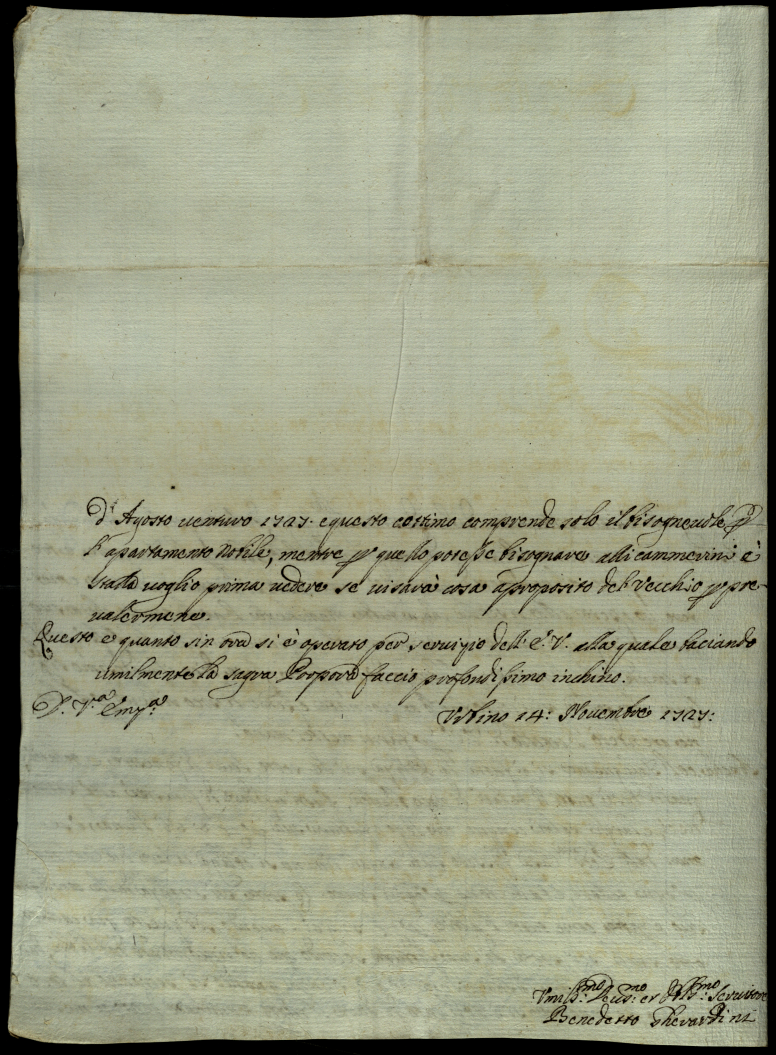 d'Agosto uenturo 1727. e questo cottimo comprende solo il bisogneuole p.
l'apartamento Nobile, mentre p quello potesse bisognare alli cammerini è
stalla uoglio prima uedere se uisarà cosa aproposito del Vecchio p pre-
ualermene.
Questo e quanto sin ora si è operato per seruigio dell'E.V. alla quale baciando
umilmente la sagra Porpora faccio profondissimo inchino.
D. V.ra Em.za
Urbino 14: Novembre 1727:
Umiliss.mo Deuo.mo et Obb.mo Seruitore
Benedetto